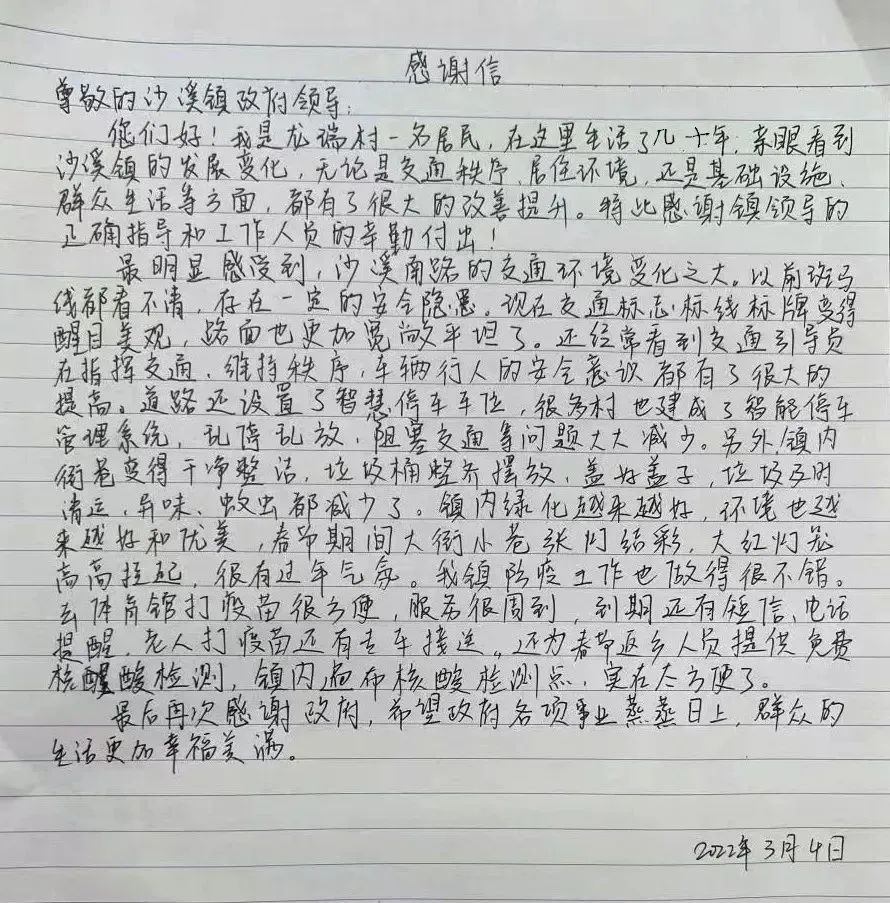 感谢信
尊敬的沙溪镇政府领导:
您们好!我是龙瑞村一名居民,在这里生活了几十年,亲眼看到
沙溪镇的发展变化,无论是交通秩序、居住环境,还是基础设施、
群众生活等方面,都有了很大的改善提升。特此感谢镇领导的
正确指导和工作人员的辛勤付出!
最明显感受到,沙溪南路的交通环境变化之大。以前斑马
线都看不清,存在一定的安全隐患。现在交通标志标线标牌变得
醒目美观,路面也更加宽敞平坦了。还经常看到交通引导员
在指挥交通、维持秩序,车辆行人的安全意识都有了很大的
提高。道路还设置了智慧停车车位,很多村也建成了智能停车
管理系统,乱停乱放、阻塞交通等问题大大减少。另外,镇内
街巷变得干净整洁,垃圾桶整齐摆放,盖好盖子,垃圾及时
清运,异味、蚊虫都减少了。镇内绿化越来越好,环境也越
来越好和优美,春节期间大街小巷张灯结彩,大红灯笼
高高挂起,很有过年气氛。我镇防疫工作也做得很不错。
去体育馆打疫苗很方便,服务很周到,到期还有短信、电话
提醒,老人打疫苗还有专车接送。还为春节返乡人员提供免费
核酸检测,镇内遍布核酸检测点,实在太方便了。
最后再次感谢政府,希望政府各项事业蒸蒸日上,群众的
生活更加幸福美满。
2022年3月4日